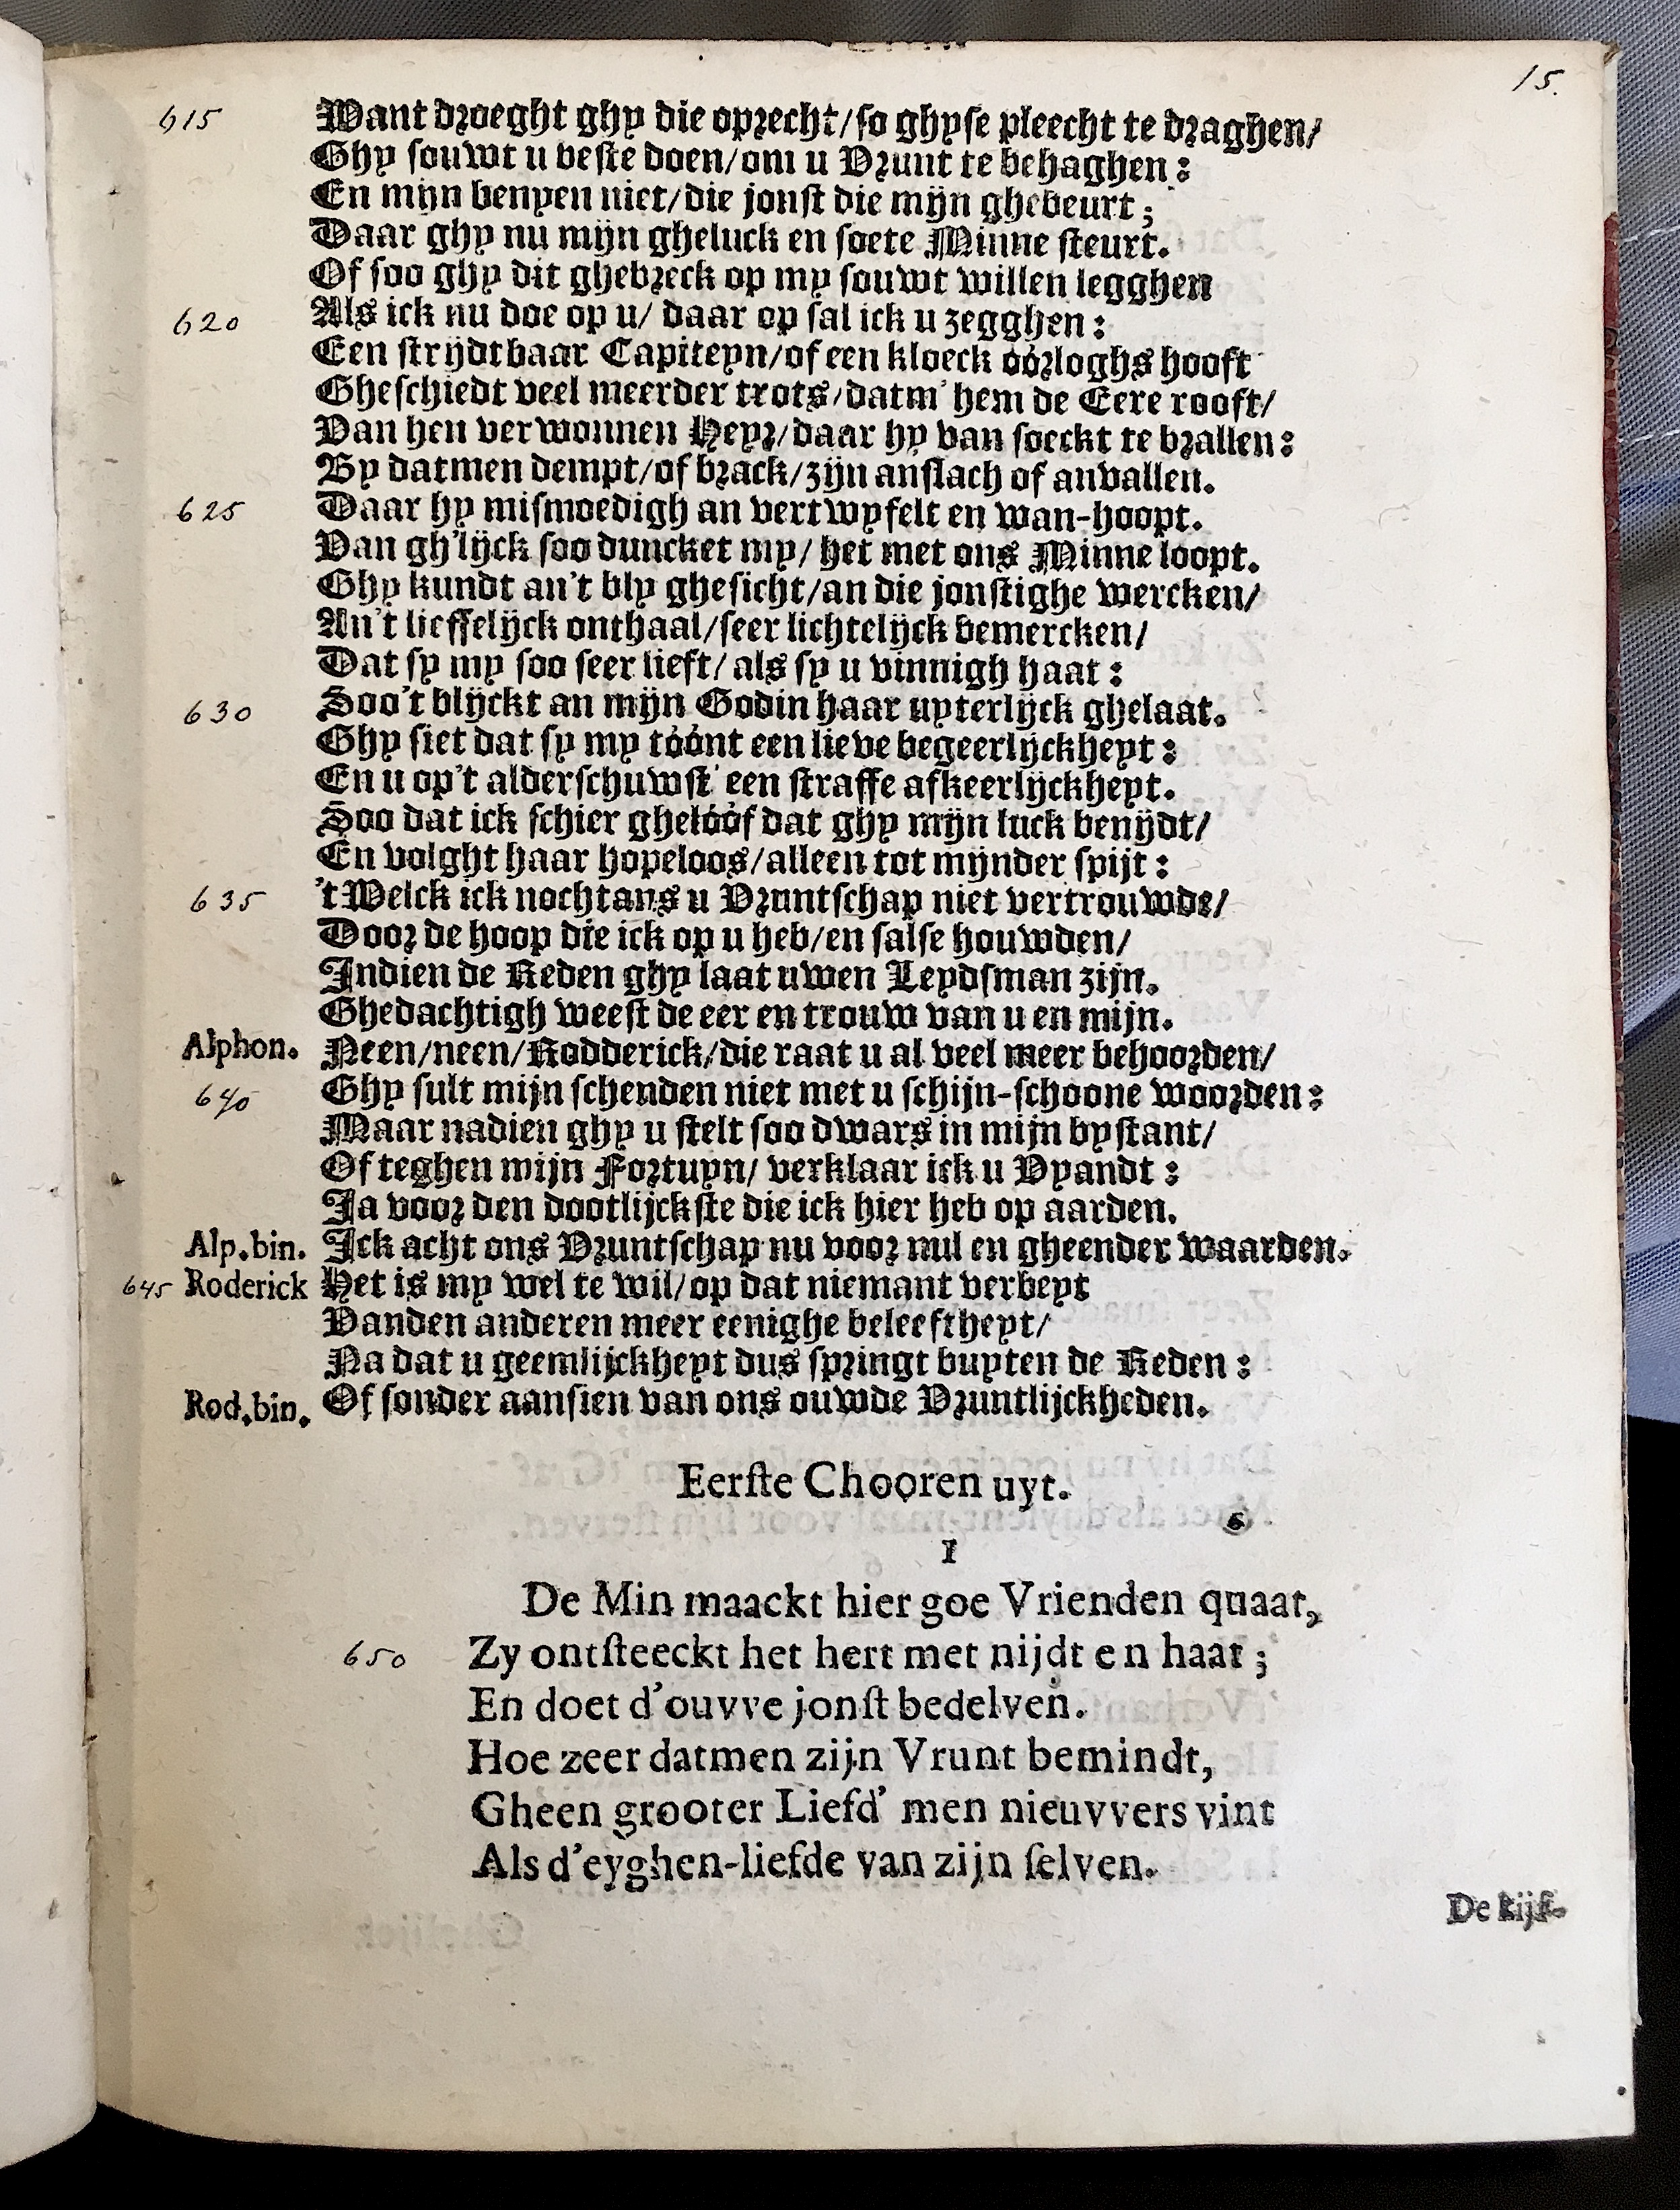 15.
615 Want droeght ghy die oprecht/so ghyse pleecht te draghen/
Ghy souwt u beste doen/om u Vrunt te behaghen:
En mijn benyen niet/die jonst die mijn ghebeurt;
Daar ghy nu mijn gheluck en soete Minne steurt.
Of soo ghy dit ghebreck op my souwt willen legghen
620 Als ick nu doe op u/ daar op sal ick u zegghen:
Een strijdtbaar Capiteyn/of een kloeck óórloghs hooft
Gheschiedt veel meerder trots/datm' hem de Eere rooft/
Van hen verwonnen Heyr/daar hy van soeckt te brallen:
By datmen dempt/of brack/zijn anslach of anvallen.
625 Daar hy mismoedigh an vertwyfelt en wan-hoopt.
Van gh'lijck soo duncket my/ het met ons Minne loopt.
Ghy kundt an't bly ghesicht/an die jonstighe wercken/
An't lieffelijck onthaal/seer lichtelijck bemercken/
Dat sy my soo seer lieft/ als sy u vinnigh haat:
630 Soo't blijckt an mijn Godin haar uyterlijck ghelaat.
Ghy siet dat sy my tóónt een lieve begeerlijckheyt:
En u op't alderschuwst' een straffe afkeerlijckheyt.
Soo dat ick schier ghelóóf dat ghy mijn luck benijdt/
En volght haar hopeloos/alleen tot mijnder spijt:
635 't Welck ick nochtans u Vruntschap niet vertrouwde/
Door de hoop die ick op u heb/en salse houwden/
Indien de Reden ghy laat uwen Leydsman zijn.
Ghedachtigh weest de eer en trouw van u en mijn.
Alphon. Neen/neen/Rodderick/die raat u al veel meer behoorden/
640 Ghy sult mijn schenden niet met u schijn-schoone woorden:
Maar nadien ghy u stelt soo dwars in mijn bystant/
Of teghen mijn Fortuyn/ verklaar ick u Vyandt:
Ja voor den dootlijckste die ick hier heb op aarden.
Alp.bin. Ick acht ons Vruntschap nu voor nul en gheender waarden.
645 Roderick Het is my wel te wil/op dat niemant verbeyt
Vanden anderen meer eenighe beleeftheyt/
Na dat u geemlijckheyt dus springt buyten de Reden:
Rod.bin. Of sonder aansien van ons ouwde Vruntlijckheden.
Eerste Chooren uyt.
1
De Min maackt hier goe Vrienden quaat,
650 Zy ontsteeckt het hert met nijdt en haat;
En doet d'ouvve jonst bedelven.
Hoe zeer datmen zijn Vrunt bemindt,
Gheen grooter Liefd' men nieuvvers vint
Als d'eyghen-liefde van zijn selven.
De kijf-